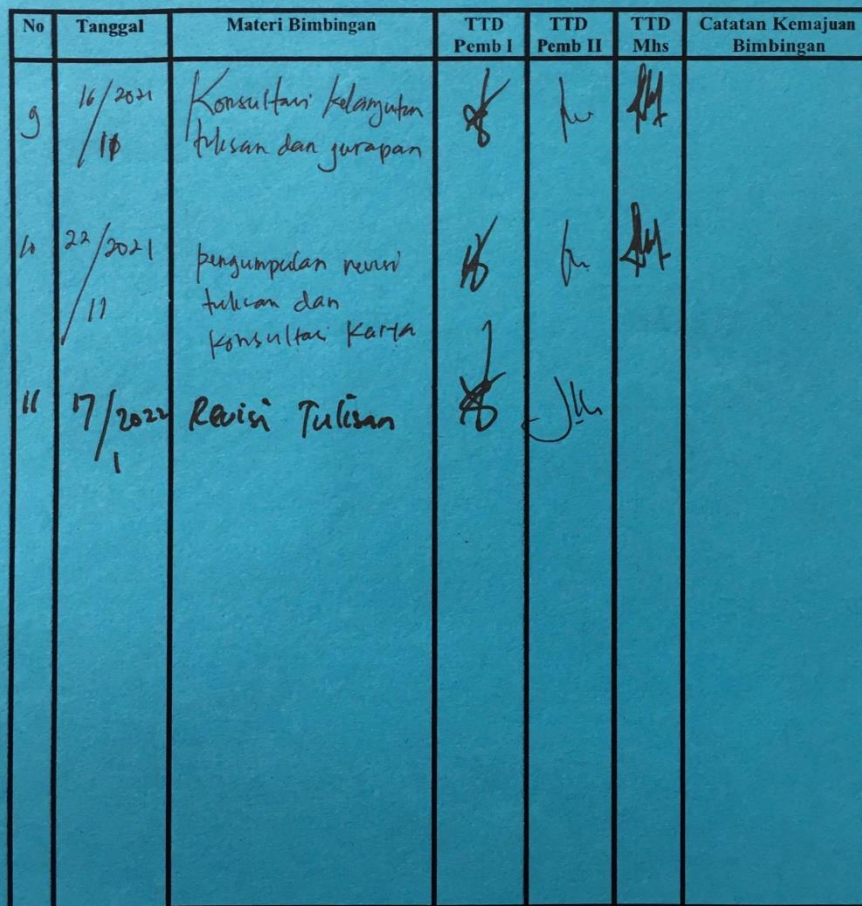 No Tanggal Materi Bimbingan TTD Pemb I TTD Pemb II TTD Mhs Catatan Kemajuan Bimbingan
9 16/2021 Konsultasi kelanjutan
tulisan dan
10 22/2021 pengumpulan revisi
/11 tulisan dan
konsultasi karya
11 17/2022 Revisi Tulisan
/1